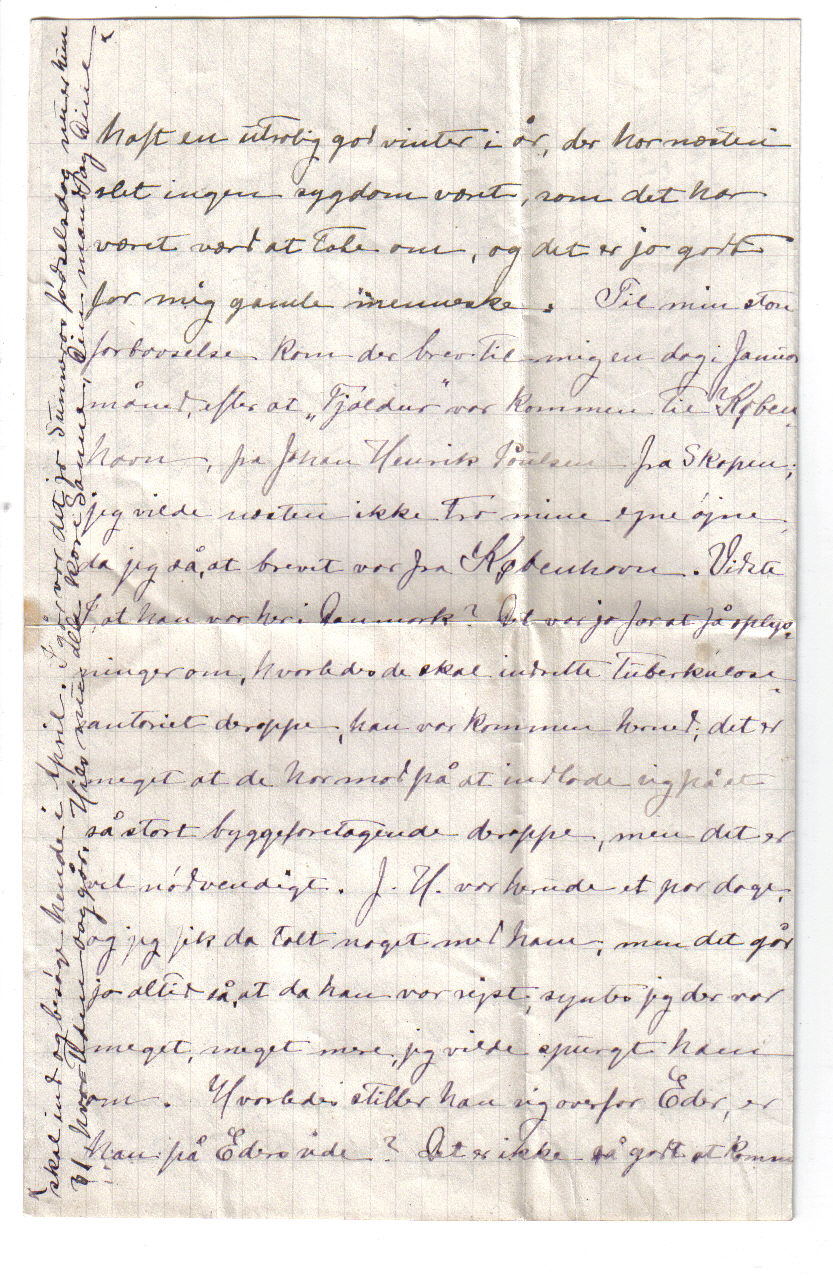 haft en utrolig god vinter i år, der har næsten
slet ingen sygdom været, som det har
været værd at tale om, og det er jo godt
for mig gamle menneske. Til min store
forbavselse kom der brev til mig en dag i Januar
måned, efter at „Tjaldur" var kommen til Køben
havn, fra Johan Henrik Poulsen fra Skopen;
jeg vilde næsten ikke tro mine egne øjne,
da jeg så, at brevet var fra København. Vidste
I, at han var her i Danmark? Det var jo for at få oplys-
ninger om, hvorledes de skal indrette Tuberkulose-
anatoriet deroppe, han var kommen herned; det er
meget at de har mod på at indlade sig på et
så stort byggeforetagende deroppe, men det er
vel nødvendigt. J. H. var herude et par dage,
og jeg fik da talt noget med ham; men det går
jo altid så, at da han var rejst, syntes jeg der var
meget, meget mere, jeg vilde spurgt ham
om. Hvorledes stiller han sig overfor Eder, er
han på Eders side? Det er ikke så godt at komme
skal ind og besøge hende i April. I går var det jo Sunneros fødselsdag,
hvor Tiden dog går. Hils nu alle kære Sanne, Din mand og Dine